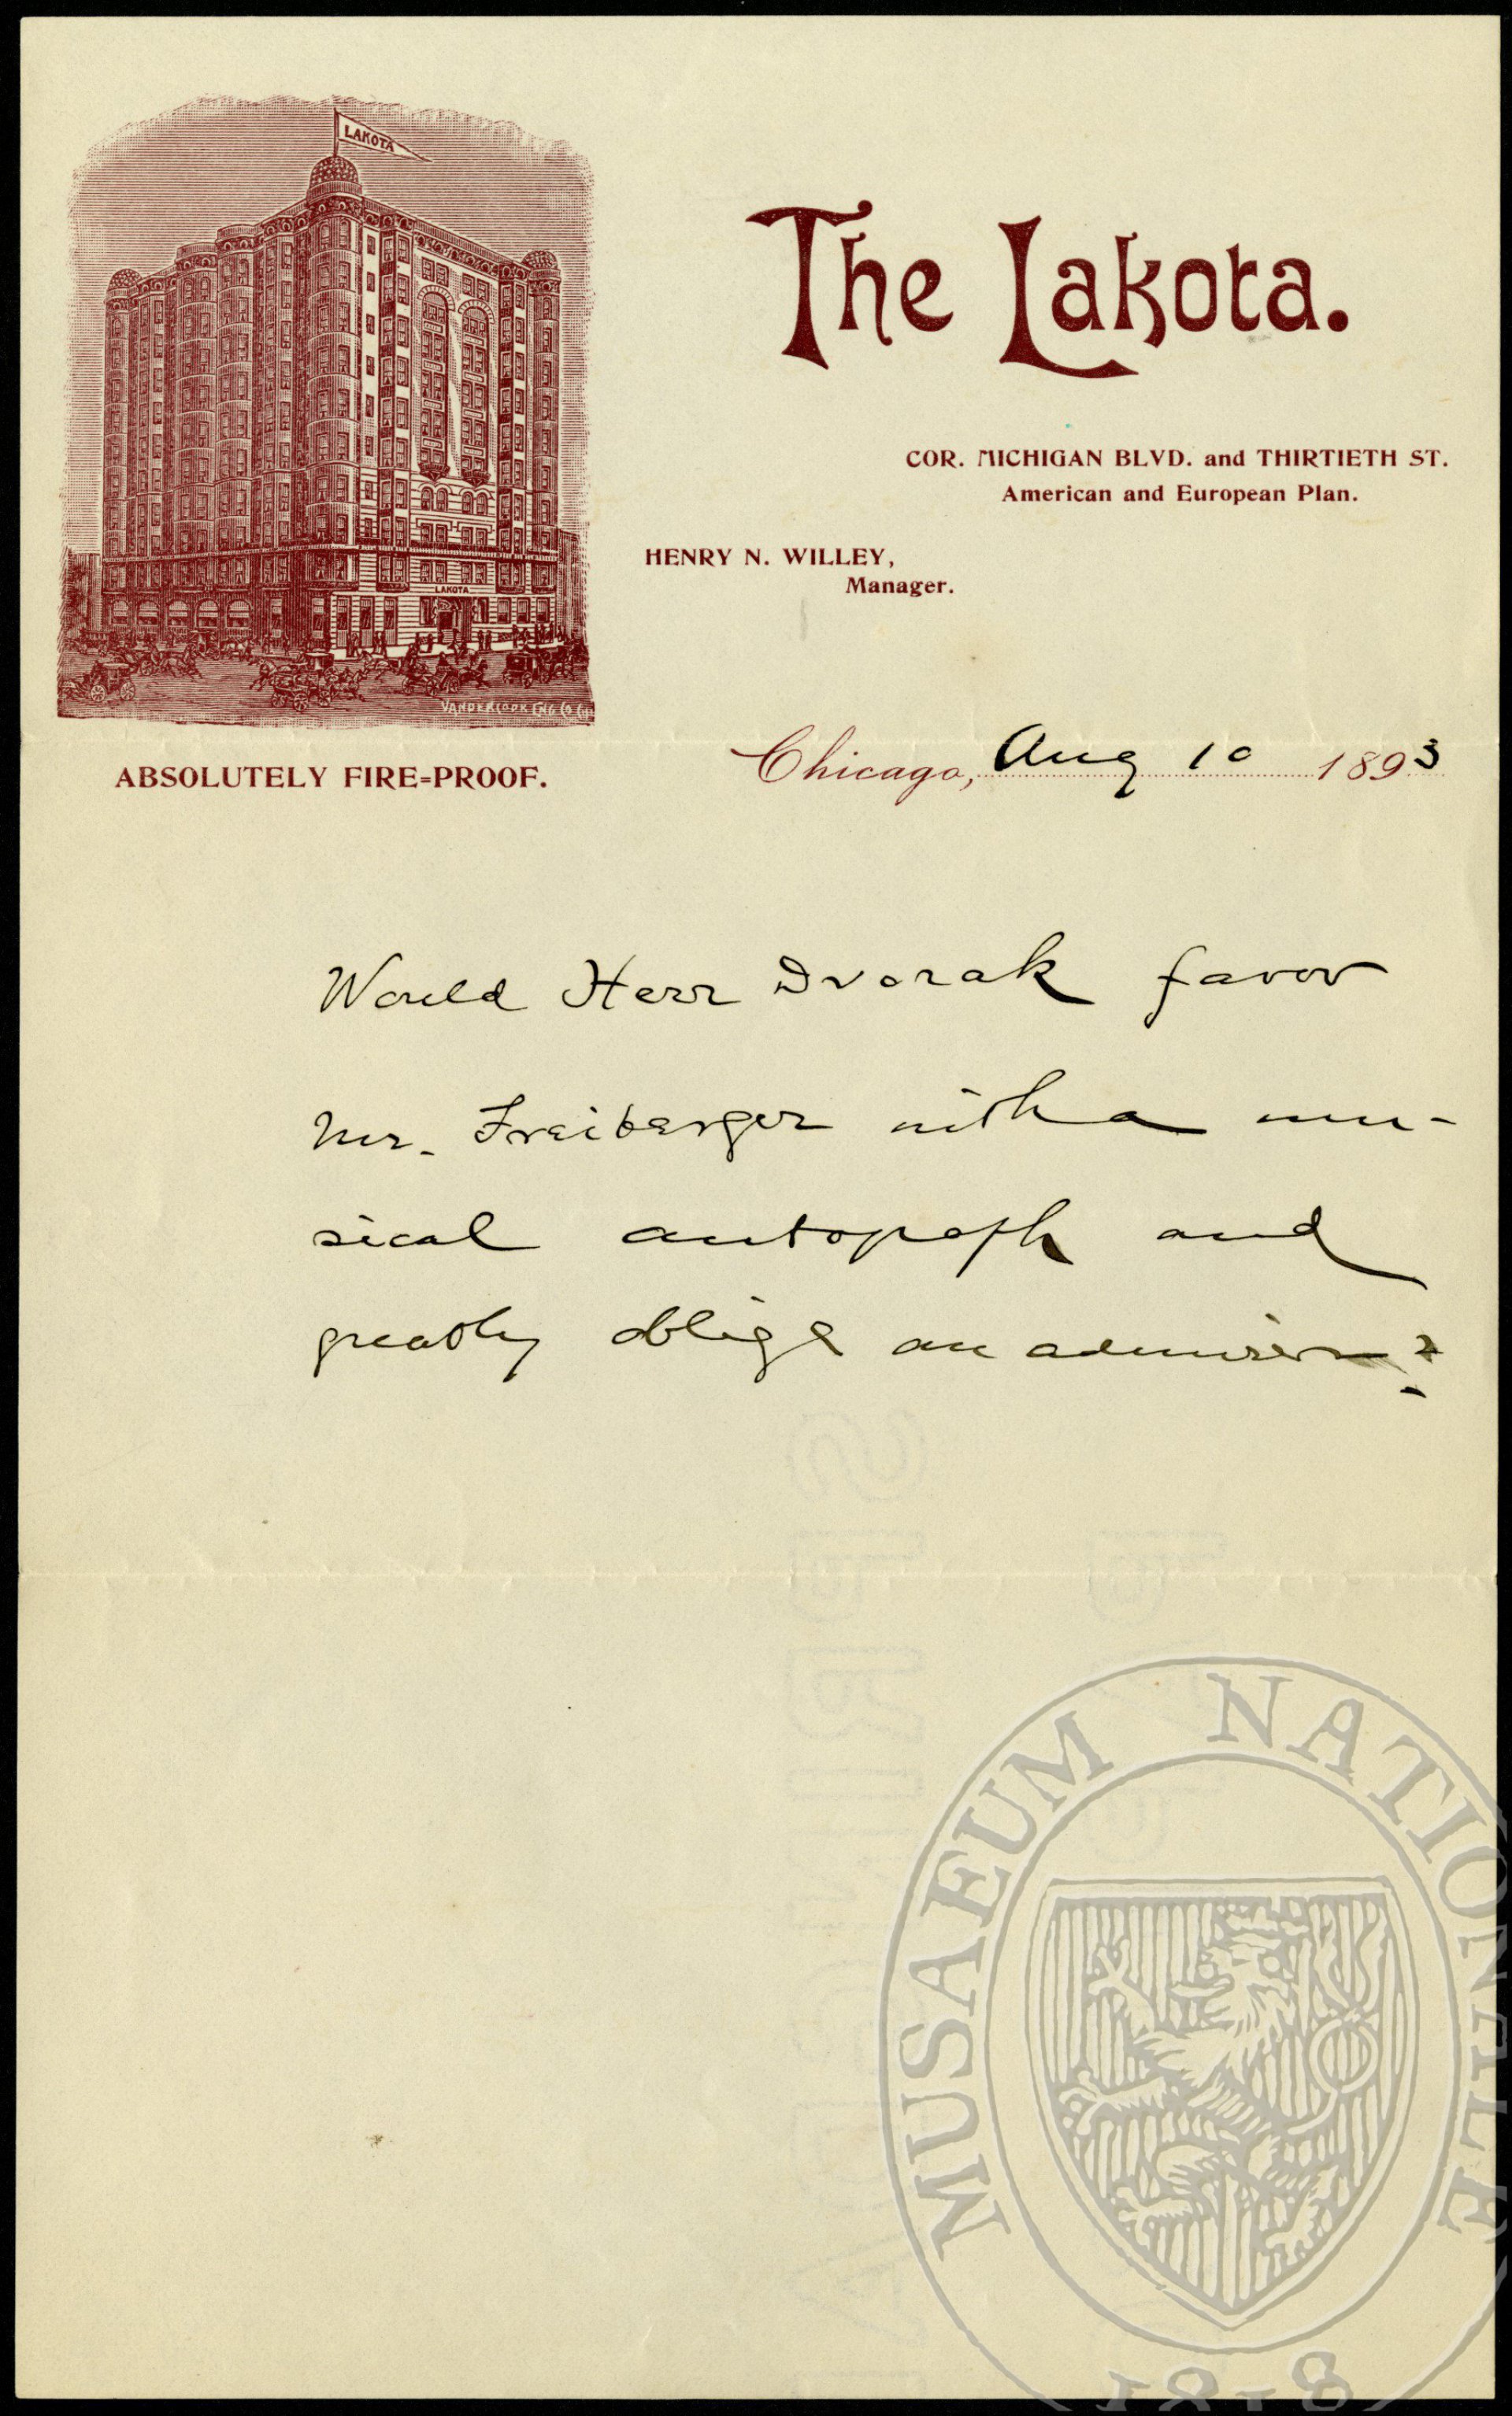 LAKOTA
The Lakota.
COR. MICHIGAN BLVD. and THIRTIETH ST.
American and European Plan.
HENRY N. WILLEY,
Manager.
LAKOTA
VANDERCOOK ENG CO CHI
ABSOLUTELY FIRE=PROOF.
Chicago, Aug 10 1893
Would Herr Dvorak favor
Mr. Freiberger with a mu-
sical autograph and
greatly oblige an admirer?
MUSAEUM NATIONALE
1818